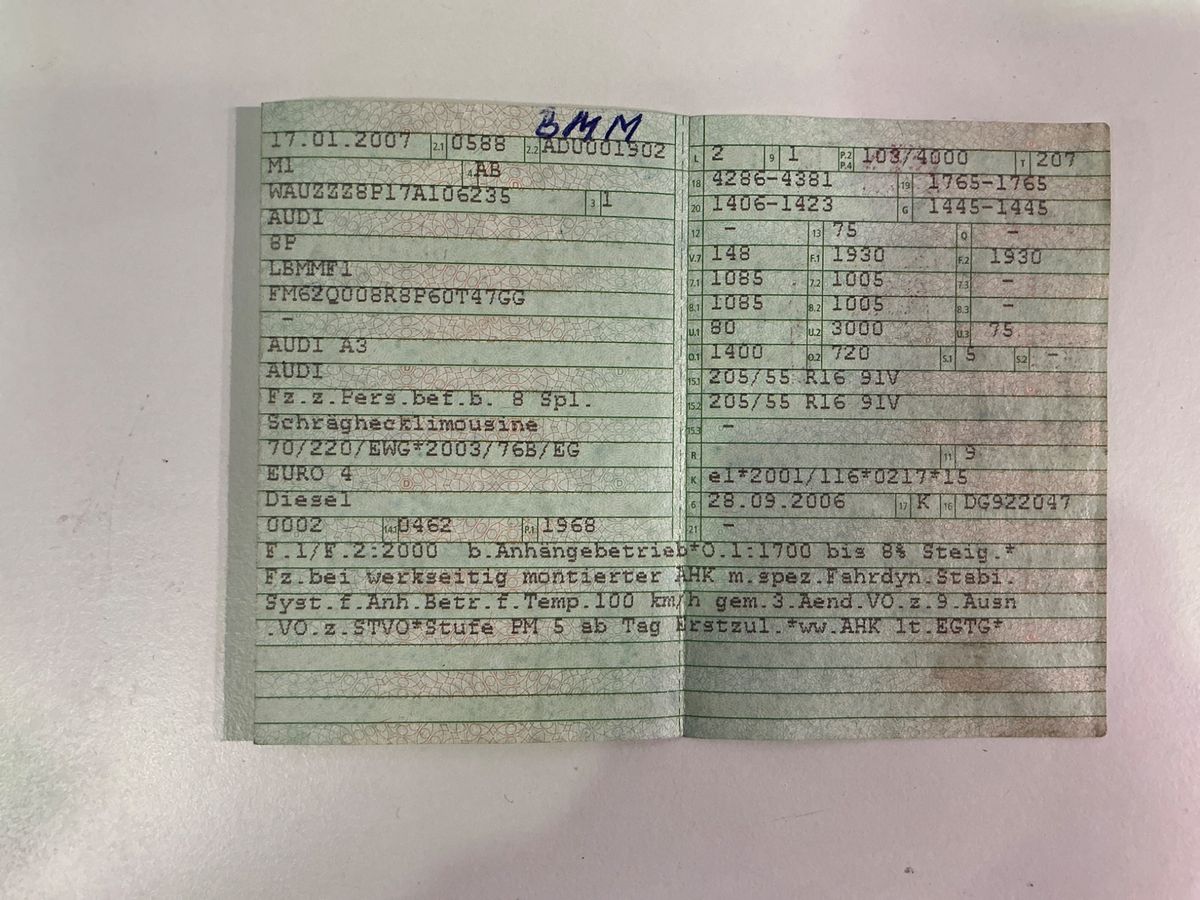 BMM
17.01.2007 2.1 0588 2.2 ADU001902
M1 4 AB
WAUZZZ8P17A106235 3 1
AUDI
8P
LBMMF1
FM62Q008R8P60T47GG
-
AUDI A3
AUDI
Fz.z.Pers.bef.b. 8 Spl.
Schräghecklimousine
70/220/EWG*2003/76B/EG
EURO 4
Diesel
0002 14.1 0462 P.1 1968
L 2 9 1 P.2 P.4 103/4000 T 207
18 4286-4381 19 1765-1765
20 1406-1423 G 1445-1445
12 - 13 75 Q -
V.7 148 F.1 1930 F.2 1930
7.1 1085 7.2 1005 7.3 -
8.1 1085 8.2 1005 8.3 -
U.1 80 U.2 3000 U.3 75
O.1 1400 O.2 720 S.1 5 S.2 -
15.1 205/55 R16 91V
15.2 205/55 R16 91V
15.3 -
R 11 9
K e1*2001/116*0217*15
6 28.09.2006 17 K 16 DG922047
21 -
F.1/F.2:2000 b.Anhängebetrieb*O.1:1700 bis 8% Steig.*
Fz.bei werkseitig montierter AHK m.spez.Fahrdyn.Stabi.
Syst.f.Anh.Betr.f.Temp.100 km/h gem.3.Aend.VO.z.9.Ausn
.VO.z.STVO*Stufe PM 5 ab Tag Erstzul.*ww.AHK lt.EGTG*